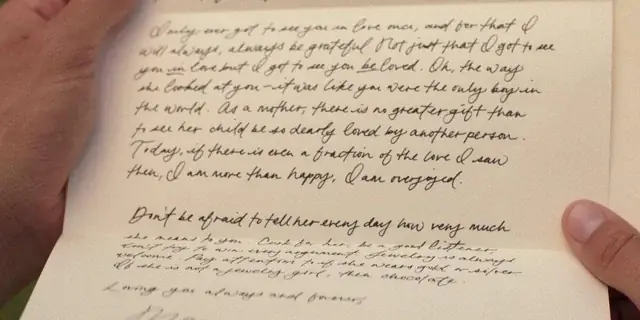 I only ever got to see you in love once, and for that I
will always, always be grateful. Not just that I got to see
you in love but I got to see you be loved. Oh, the way
she looked at you - it was like you were the only boy in
the world. As a mother, there is no greater gift than
to see her child be so dearly loved by another person.
Today, if there is even a fraction of the love I saw
then, I am more than happy, I am overjoyed.
Don't be afraid to tell her every day how very much
she means to you. Cook for her, be a good listener,
don't try to win every argument. Jewelry is always
welcome. Pay attention to if she wears gold or silver
If she is not a jewelry girl, then chocolate.
Loving you always and forever,